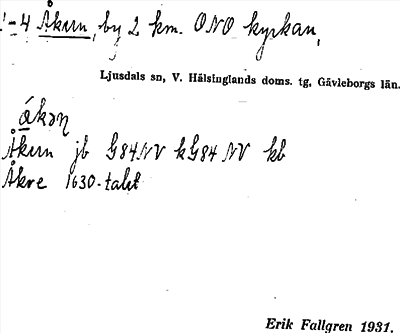 1-4 Åkern, by 2 km. ONO kyrkan,
Ljusdals sn, V. Hälsinglands doms. tg, Gävleborgs län.
åkəṇ
Åkern jb G84NV k G84 NV kb
Åkre 1630-talet
Erik Fallgren 1931.